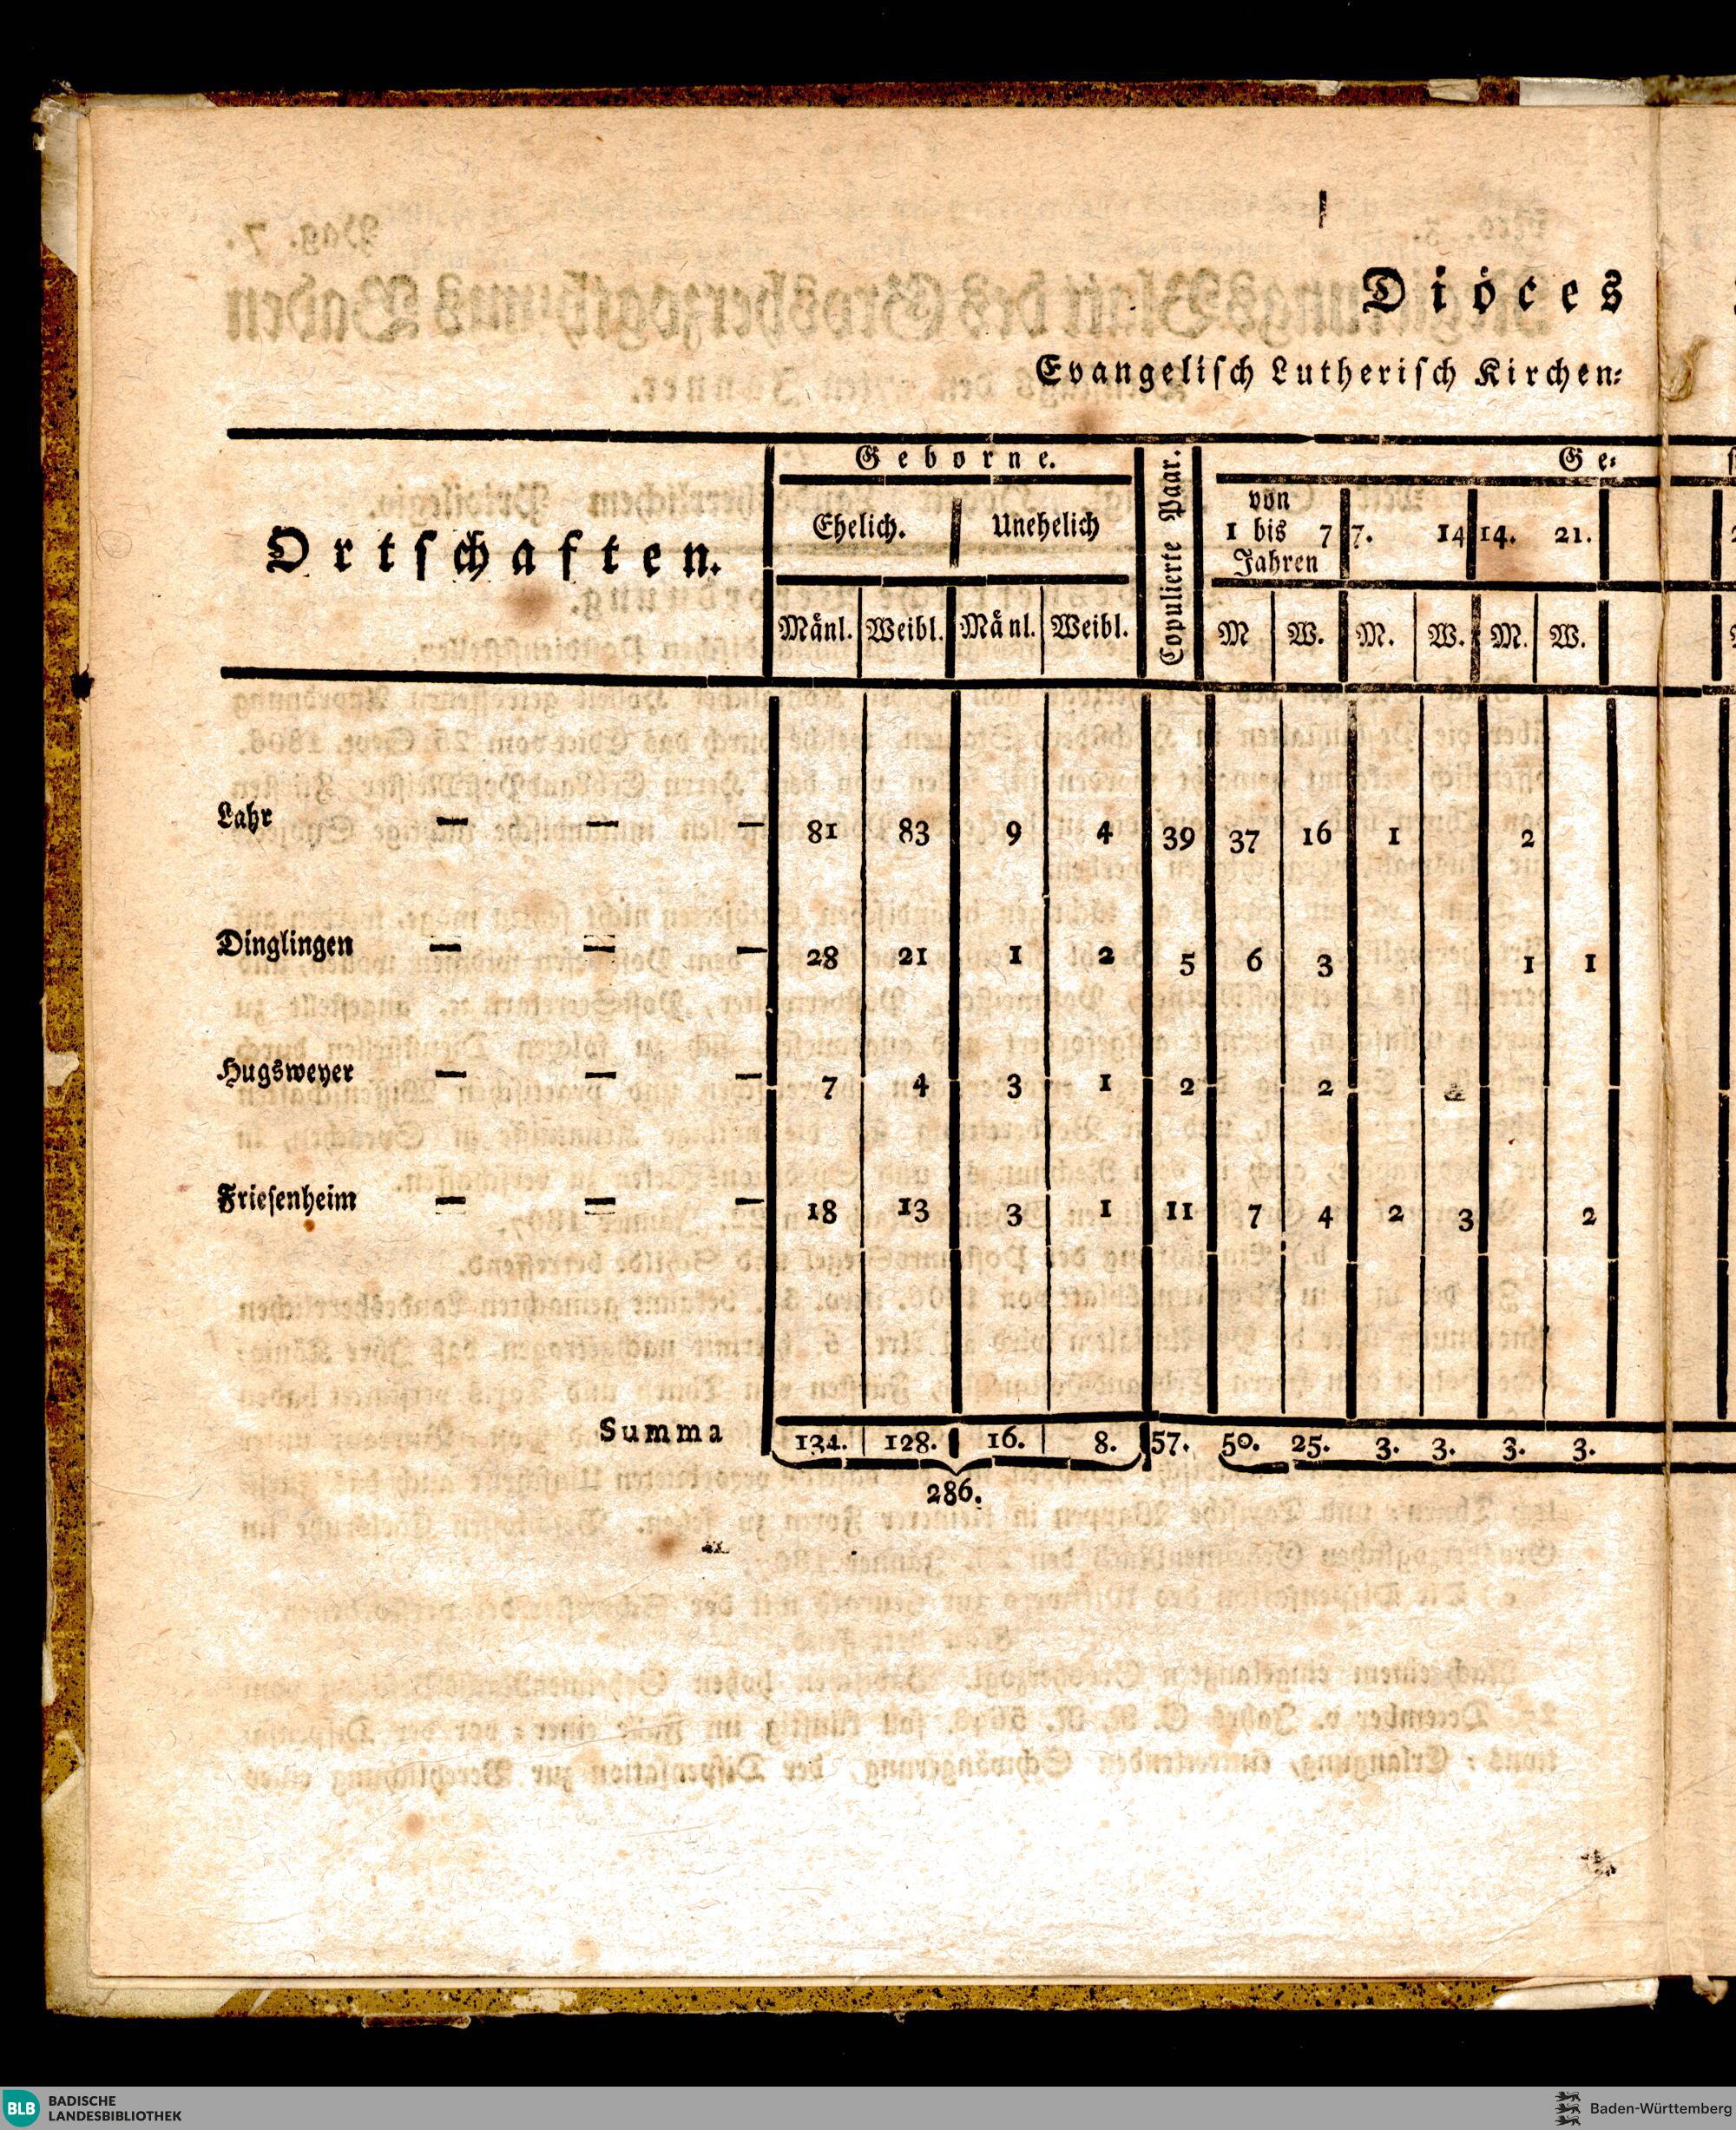 Diöces
Evangelisch Lutherisch Kirchen:
Ortschaften.
Geborne.
Copulierte Paar.
Ge:
Ehelich. Unehelich
von
1 bis 7
Jahren
7. 14
14. 21.
Mänl. Weibl. Mänl. Weibl. M W. M. W. M. W.
Lahr — — — 81 83 9 4 39 37 16 1 2
Dinglingen — — — 28 21 1 2 5 6 3 1 1
Hugsweyer — — — 7 4 3 1 2 2
Friesenheim — — — 18 13 3 1 11 7 4 2 3 2
Summa 134. 128. 16. 8. 57. 50. 25. 3. 3. 3. 3.
286.
BLB BADISCHE
LANDESBIBLIOTHEK
Baden-Württemberg